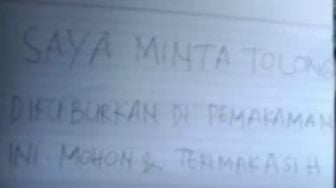 SAYA MINTA TOLONG
DIKUBURKAN DI PEMAKAMAN
INI MOHON & TERIMAKASIH